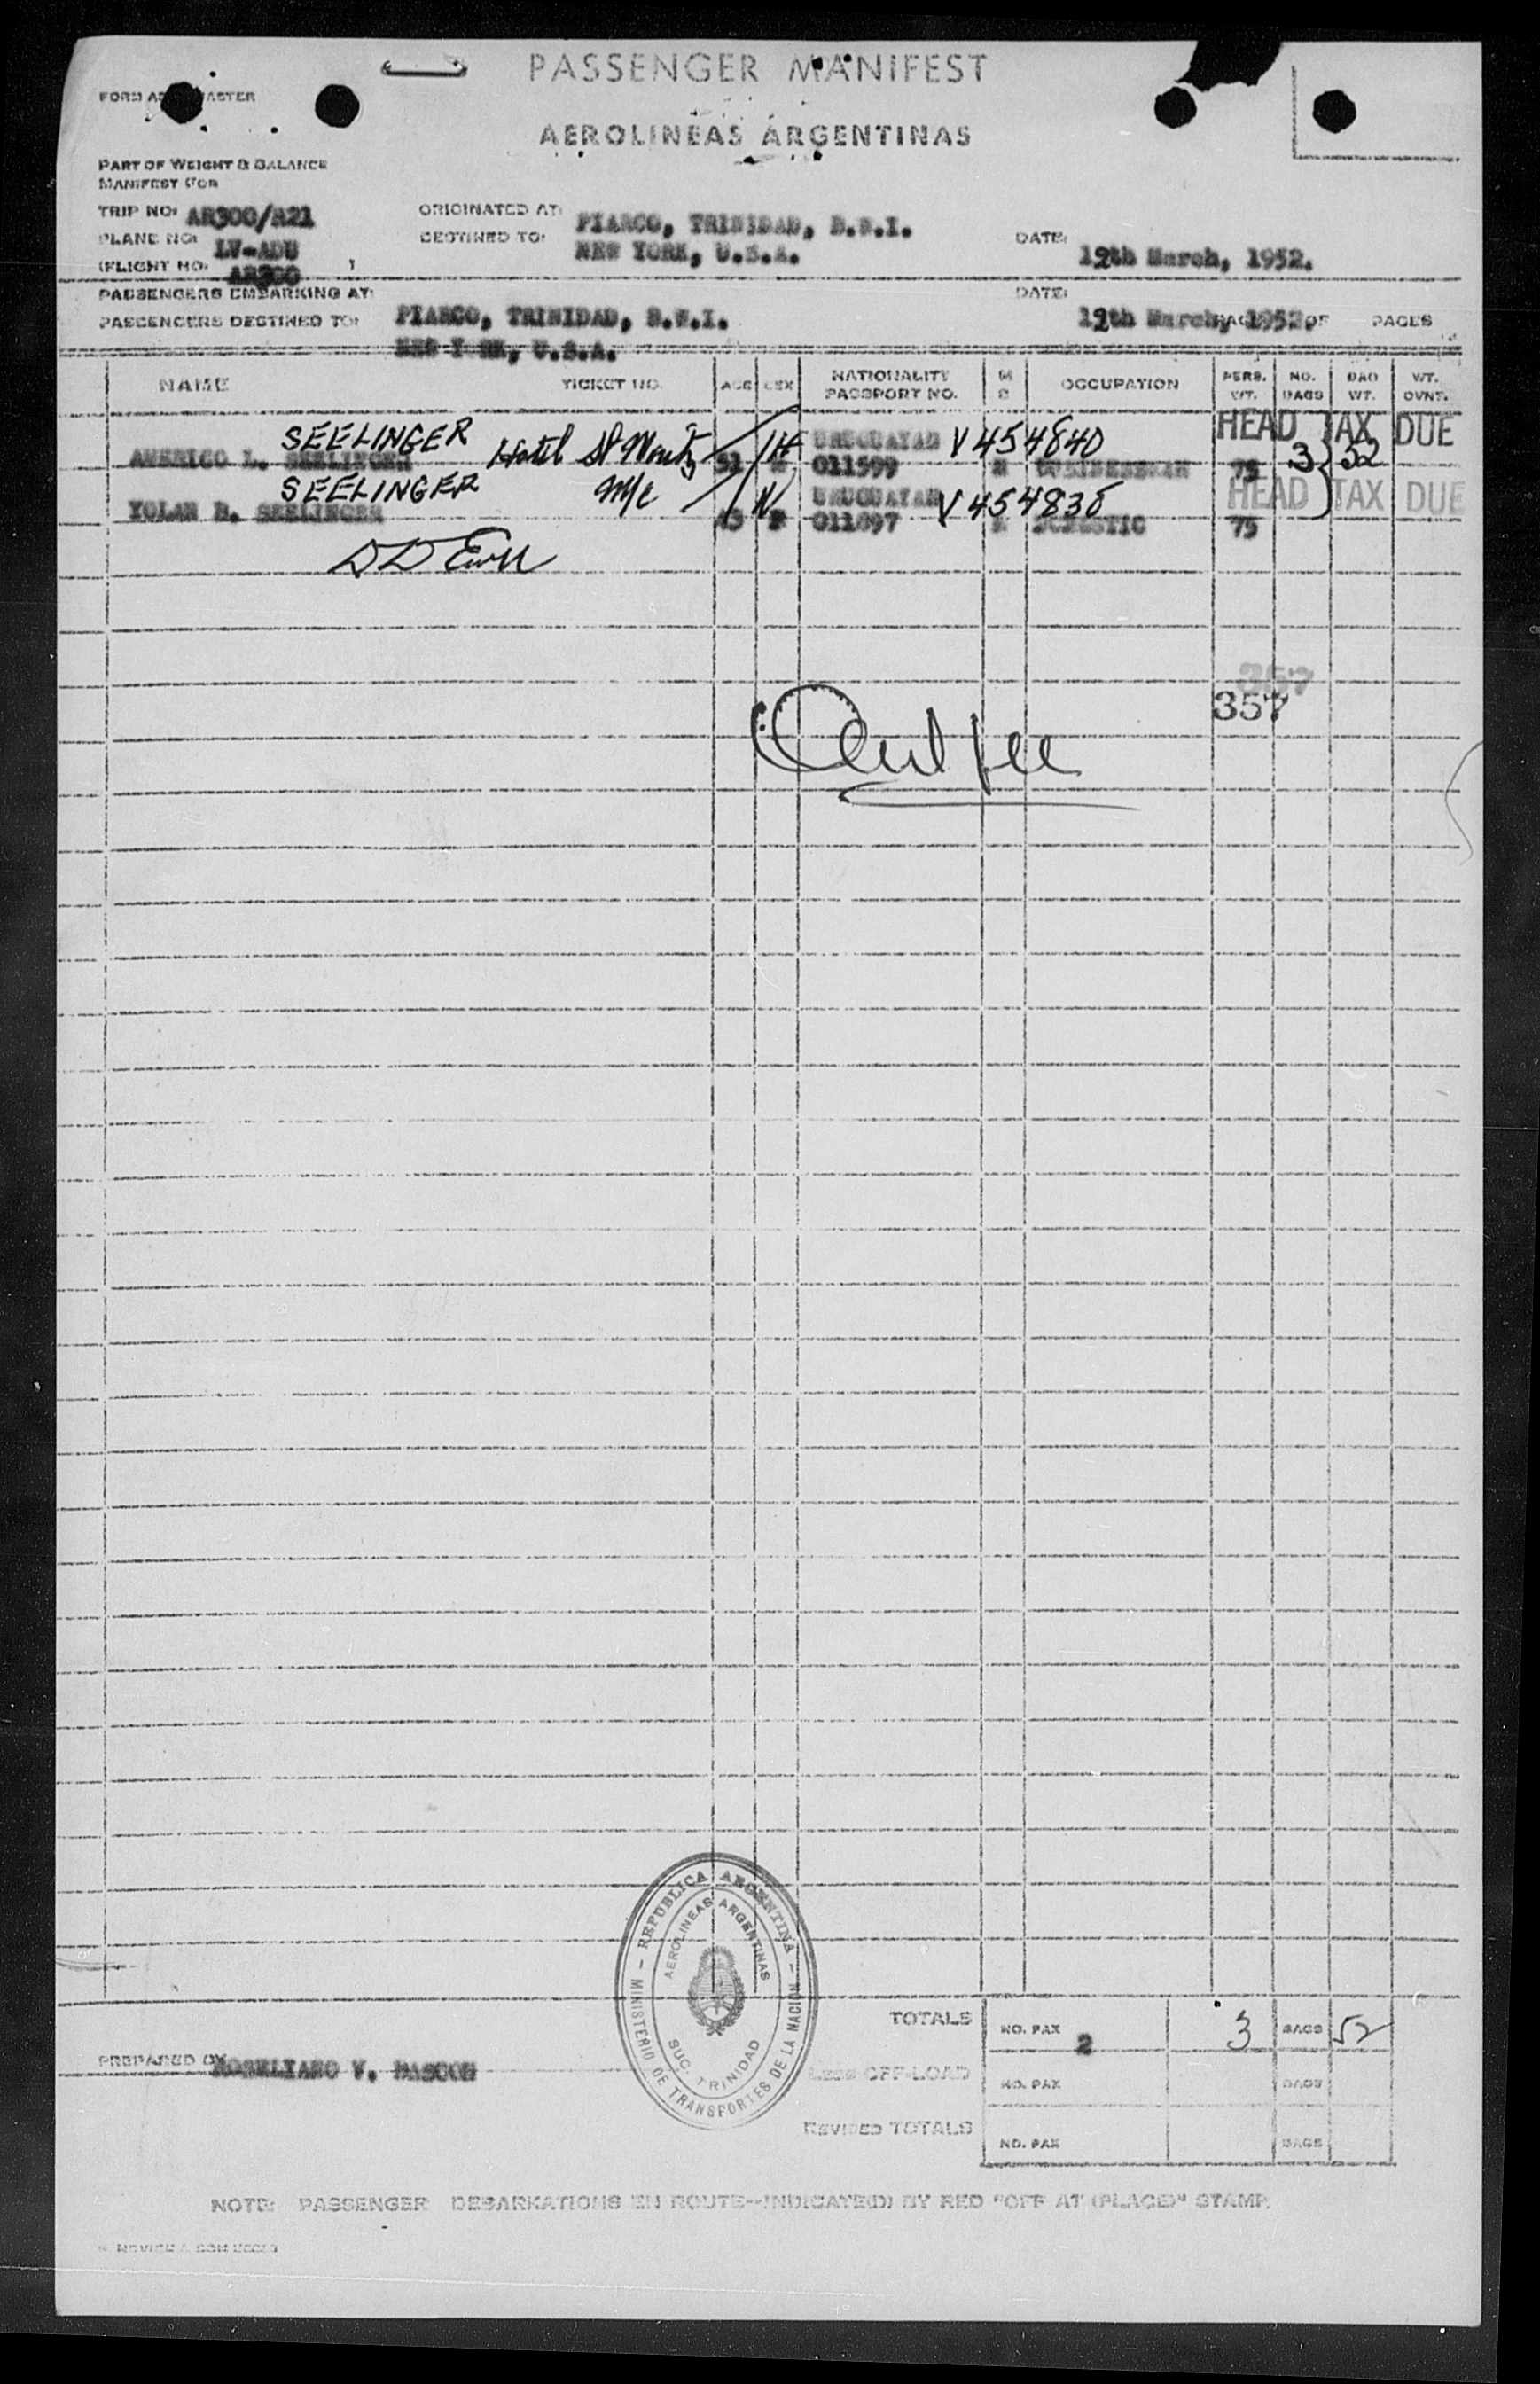 PASSENGER MANIFEST
AEROLINEAS ARGENTINAS
PART OF WEIGHT & BALANCE
MANIFEST FOR
TRIP NO: AR300/A21
ORIGINATED AT: PIARCO, TRINIDAD, B.W.I.
PLANE NO: LV-ADU
DESTINED TO: NEW YORK, U.S.A.
DATE: 12th March, 1952.
(FLIGHT NO. AR300 )
PASSENGERS EMBARKING AT: PIARCO, TRINIDAD, B.W.I.
DATE: 12th March, 1952.
PASSENGERS DESTINED TO: NEW YORK, U.S.A.
PAGE OF PAGES
NAME TICKET NO. AGE SEX NATIONALITY PASSPORT NO. M S OCCUPATION PERS. WT. NO. BAGS BAG WT. WT. OVNT.
SEELINGER Hotel St Moritz URUGUAYAN V454840 HEAD TAX DUE
AMERICO L. SEELINGER 51 M 011599 M BUSINESSMAN 75 3 52
SEELINGER M/c URUGUAYAN V454835 HEAD TAX DUE
YOLAN B. SEELINGER 43 F 011697 DOMESTIC 75
357
357
REPUBLICA ARGENTINA - MINISTERIO DE TRANSPORTES DE LA NACION -
AEROLINEAS ARGENTINAS
SUC. TRINIDAD
TOTALS NO. PAX 2 3 BAGS 52
PREPARED BY V.
LESS OFF-LOAD NO. PAX BAGS
REVISED TOTALS NO. PAX BAGS
NOTE: PASSENGER DEBARKATIONS EN ROUTE--INDICATE(D) BY RED "OFF AT (PLACE)" STAMP.